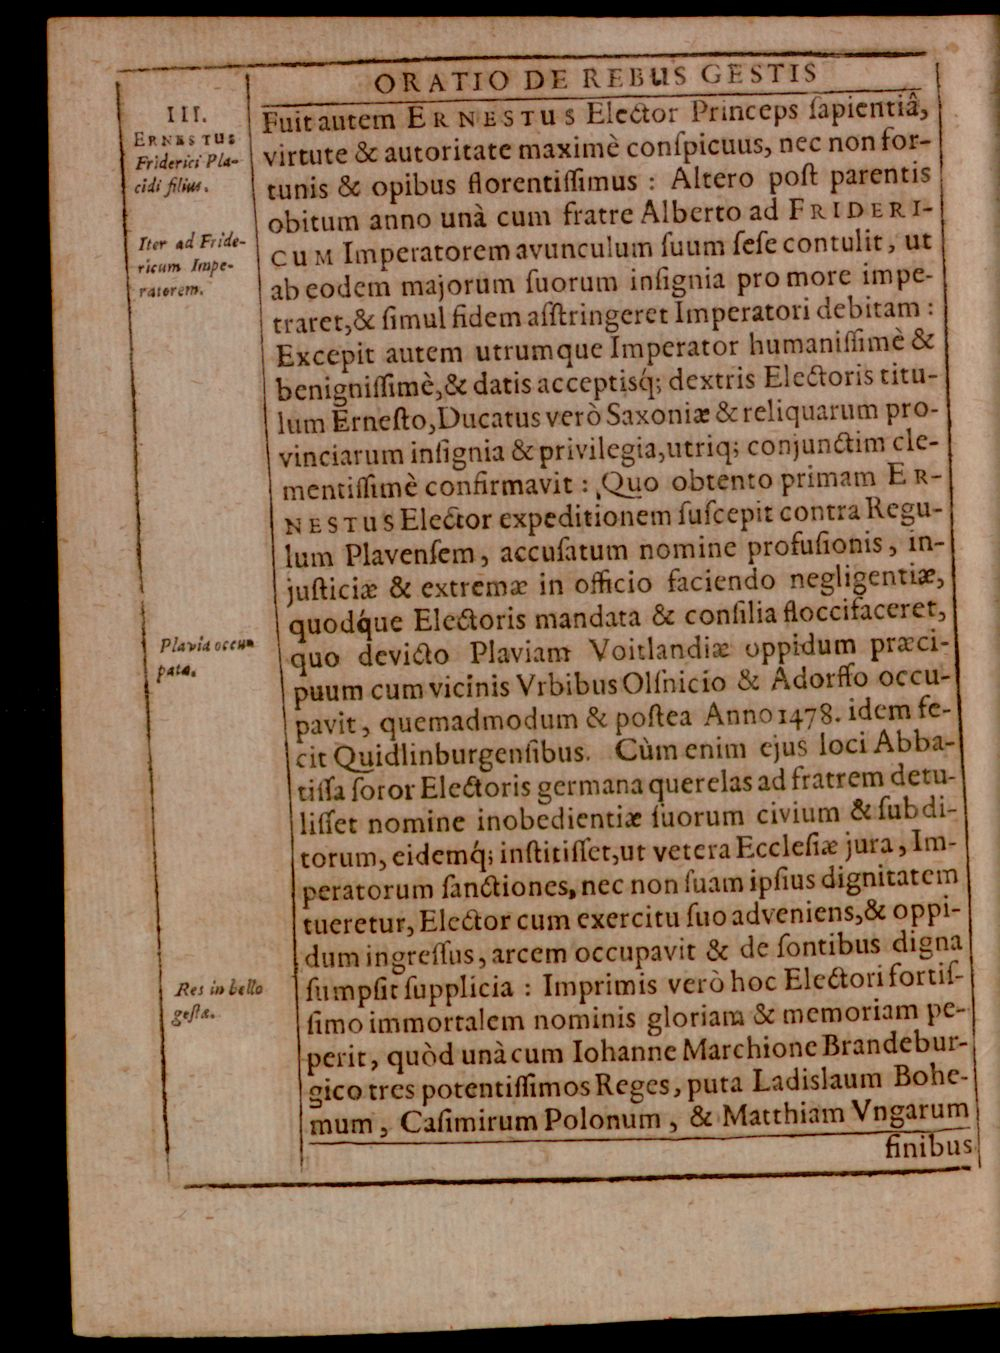 ORATIO DE REBUS GESTIS
III.
ERNESTUS
Friderici Pla-
cidi filius.
Iter ad Fride-
ricum Impe-
ratorem.
Plavia occu-
pata.
Res in bello
gestæ.
Fuit autem ERNESTUS Elector Princeps ſapientiâ,
virtute & autoritate maximè conſpicuus, nec non for-
tunis & opibus florentiſſimus : Altero poſt parentis
obitum anno unà cum fratre Alberto ad FRIDERI-
CUM Imperatorem avunculum ſuum ſeſe contulit, ut
ab eodem majorum ſuorum inſignia pro more impe-
traret,& ſimul fidem aſſtringeret Imperatori debitam :
Excepit autem utrumque Imperator humaniſſimè &
benigniſſimè,& datis acceptisq́; dextris Electoris titu-
lum Erneſto,Ducatus verò Saxoniæ & reliquarum pro-
vinciarum inſignia & privilegia,utriq; conjunctim cle-
mentiſſimè confirmavit : Quo obtento primam ER-
NESTUS Elector expeditionem ſuſcepit contra Regu-
lum Plavenſem, accuſatum nomine profuſionis, in-
juſticiæ & extremæ in officio faciendo negligentiæ,
quodq́ue Electoris mandata & conſilia floccifaceret,
quo devicto Plaviam Voitlandiæ oppidum præci-
puum cum vicinis Vrbibus Olſnicio & Adorffo occu-
pavit, quemadmodum & poſtea Anno 1478. idem fe-
cit Quidlinburgenſibus. Cùm enim ejus loci Abba-
tiſſa ſoror Electoris germana querelas ad fratrem detu-
liſſet nomine inobedientiæ ſuorum civium & ſubdi-
torum, eidemq́; inſtitiſſet,ut vetera Eccleſiæ jura, Im-
peratorum ſanctiones, nec non ſuam ipſius dignitatem
tueretur, Elector cum exercitu ſuo adveniens,& oppi-
dum ingreſſus, arcem occupavit & de ſontibus digna
ſumpſit ſupplicia : Imprimis verò hoc Electori fortiſ-
ſimo immortalem nominis gloriam & memoriam pe-
perit, quòd unà cum Iohanne Marchione Brandebur-
gico tres potentiſſimos Reges, puta Ladislaum Bohe-
mum, Caſimirum Polonum, & Matthiam Vngarum
finibus